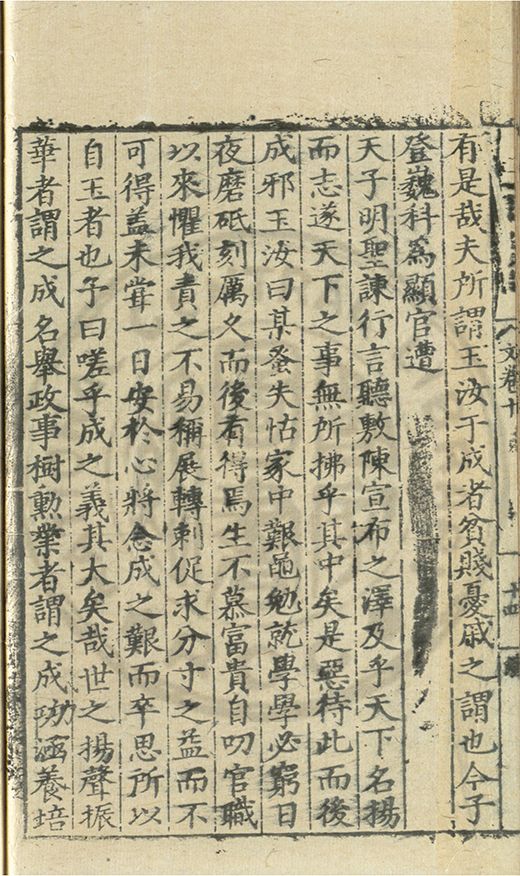 有是哉夫所謂玉汝于成者貧賤憂戚之謂也今子
登巍科為顯官遭
天子明聖諫行言聽敷陳宣布之澤及乎天下名揚
而志遂天下之事無所拂乎其中矣是惡待此而後
成邪玉汝曰某蚤失怙家中艱黽勉就學學必窮日
夜磨砥刻厲久而後有得焉生不慕富貴自叨官職
以來懼我責之不易稱展轉刺促求分寸之益而不
可得蓋未甞一日安於心將念成之艱而卒思所以
自玉者也予曰嗟乎成之義其大矣哉世之揚聲振
華者謂之成名舉政事樹勲業者謂之成功涵養培
文卷十
十四